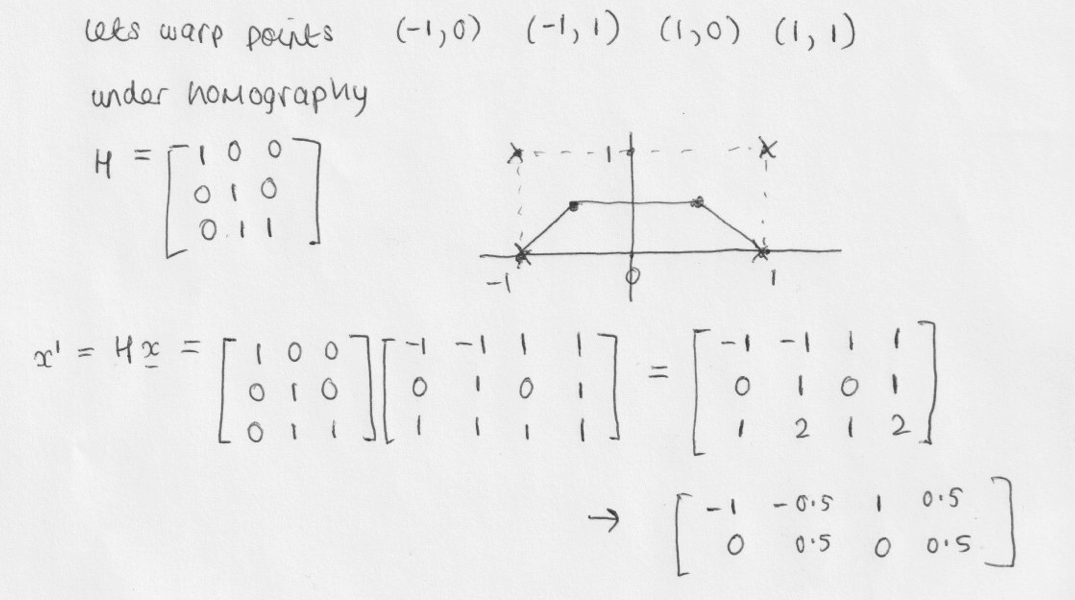 lets warp points (-1,0) (-1,1) (1,0) (1,1)
under homography
H = [ 1 0 0
0 1 0
0 1 1 ]
1
-1 0 1
x' = Hx = [ 1 0 0 ] [ -1 -1 1 1 ] = [ -1 -1 1 1 ]
[ 0 1 0 ] [ 0 1 0 1 ] [ 0 1 0 1 ]
[ 0 1 1 ] [ 1 1 1 1 ] [ 1 2 1 2 ]
→ [ -1 -0.5 1 0.5 ]
[ 0 0.5 0 0.5 ]